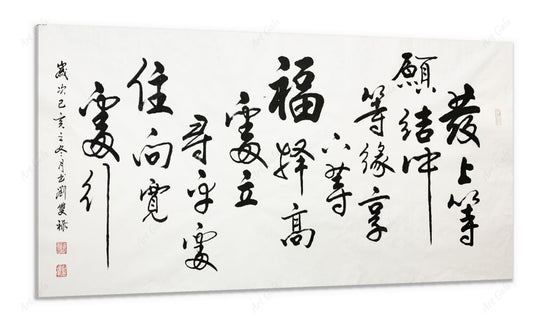 發上等
願結中
等緣享
下等
福擇高
處立
尋平處
住向寬
處行
歲次己亥之冬月書劉雙祿